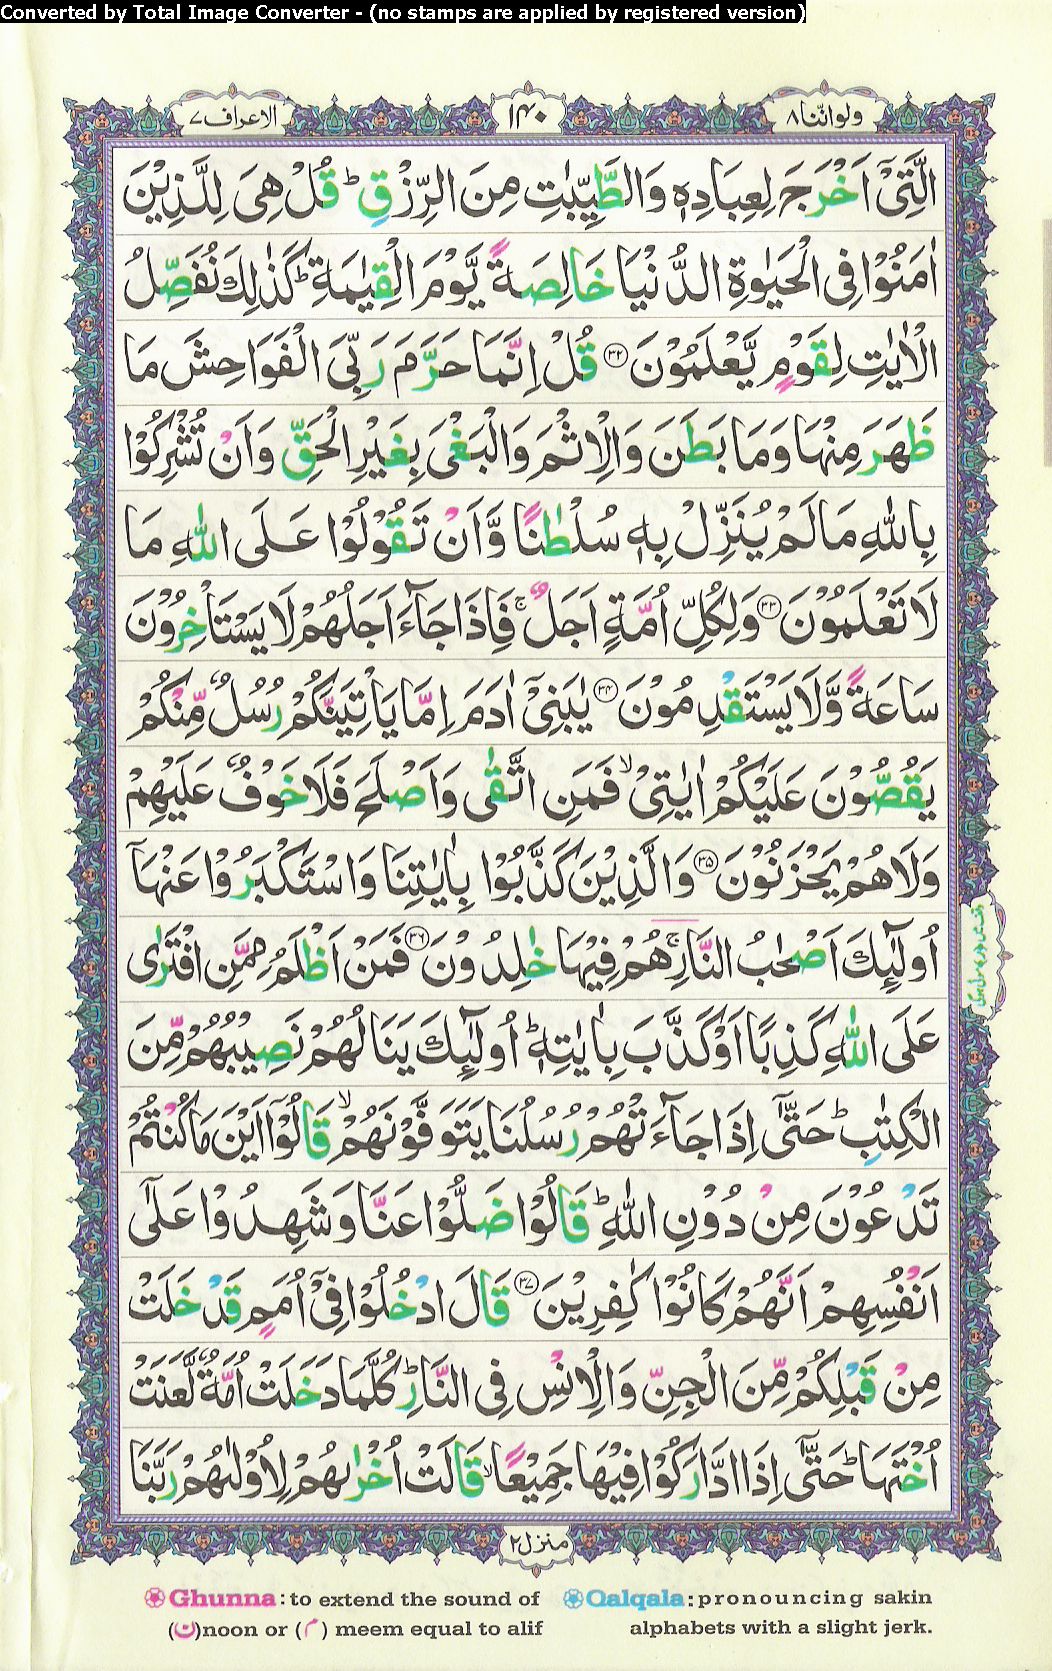 Converted by Total Image Converter - (no stamps are applied by registered version)
ولواننا ٨ ١٤٠ الاعراف ٧
الَّتِیْۤ اَخْرَجَ لِعِبَادِهٖ وَالطَّیِّبٰتِ مِنَ الرِّزْقِ ؕ قُلْ هِیَ لِلَّذِیْنَ
اٰمَنُوْا فِی الْحَیٰوةِ الدُّنْیَا خَالِصَةً یَّوْمَ الْقِیٰمَةِ ؕ كَذٰلِكَ نُفَصِّلُ
الْاٰیٰتِ لِقَوْمٍ یَّعْلَمُوْنَ ﴿۳۲﴾ قُلْ اِنَّمَا حَرَّمَ رَبِّیَ الْفَوَاحِشَ مَا
ظَهَرَ مِنْهَا وَمَا بَطَنَ وَالْاِثْمَ وَالْبَغْیَ بِغَیْرِ الْحَقِّ وَاَنْ تُشْرِكُوْا
بِاللّٰهِ مَا لَمْ یُنَزِّلْ بِهٖ سُلْطٰنًا وَّاَنْ تَقُوْلُوْا عَلَی اللّٰهِ مَا
لَا تَعْلَمُوْنَ ﴿۳۳﴾ وَلِكُلِّ اُمَّةٍ اَجَلٌ ۚ فَاِذَا جَآءَ اَجَلُهُمْ لَا یَسْتَاْخِرُوْنَ
سَاعَةً وَّلَا یَسْتَقْدِمُوْنَ ﴿۳۴﴾ یٰبَنِیْۤ اٰدَمَ اِمَّا یَاْتِیَنَّكُمْ رُسُلٌ مِّنْكُمْ
یَقُصُّوْنَ عَلَیْكُمْ اٰیٰتِیْ ۙ فَمَنِ اتَّقٰی وَاَصْلَحَ فَلَا خَوْفٌ عَلَیْهِمْ
وَلَا هُمْ یَحْزَنُوْنَ ﴿۳۵﴾ وَالَّذِیْنَ كَذَّبُوْا بِاٰیٰتِنَا وَاسْتَكْبَرُوْا عَنْهَاۤ
اُولٰٓئِكَ اَصْحٰبُ النَّارِ ۚ هُمْ فِیْهَا خٰلِدُوْنَ ﴿۳۶﴾ فَمَنْ اَظْلَمُ مِمَّنِ افْتَرٰی
عَلَی اللّٰهِ كَذِبًا اَوْ كَذَّبَ بِاٰیٰتِهٖ ؕ اُولٰٓئِكَ یَنَالُهُمْ نَصِیْبُهُمْ مِّنَ
الْكِتٰبِ ؕ حَتّٰۤی اِذَا جَآءَتْهُمْ رُسُلُنَا یَتَوَفَّوْنَهُمْ ۙ قَالُوْۤا اَیْنَ مَا كُنْتُمْ
تَدْعُوْنَ مِنْ دُوْنِ اللّٰهِ ؕ قَالُوْا ضَلُّوْا عَنَّا وَشَهِدُوْا عَلٰۤی
اَنْفُسِهِمْ اَنَّهُمْ كَانُوْا كٰفِرِیْنَ ﴿۳۷﴾ قَالَ ادْخُلُوْا فِیْۤ اُمَمٍ قَدْ خَلَتْ
مِنْ قَبْلِكُمْ مِّنَ الْجِنِّ وَالْاِنْسِ فِی النَّارِ ؕ كُلَّمَا دَخَلَتْ اُمَّةٌ لَّعَنَتْ
اُخْتَهَا ؕ حَتّٰۤی اِذَا ادَّارَكُوْا فِیْهَا جَمِیْعًا ۙ قَالَتْ اُخْرٰىهُمْ لِاُوْلٰىهُمْ رَبَّنَا
منزل ٢
Ghunna: to extend the sound of (ن)noon or (م) meem equal to alif
Qalqala: pronouncing sakin alphabets with a slight jerk.